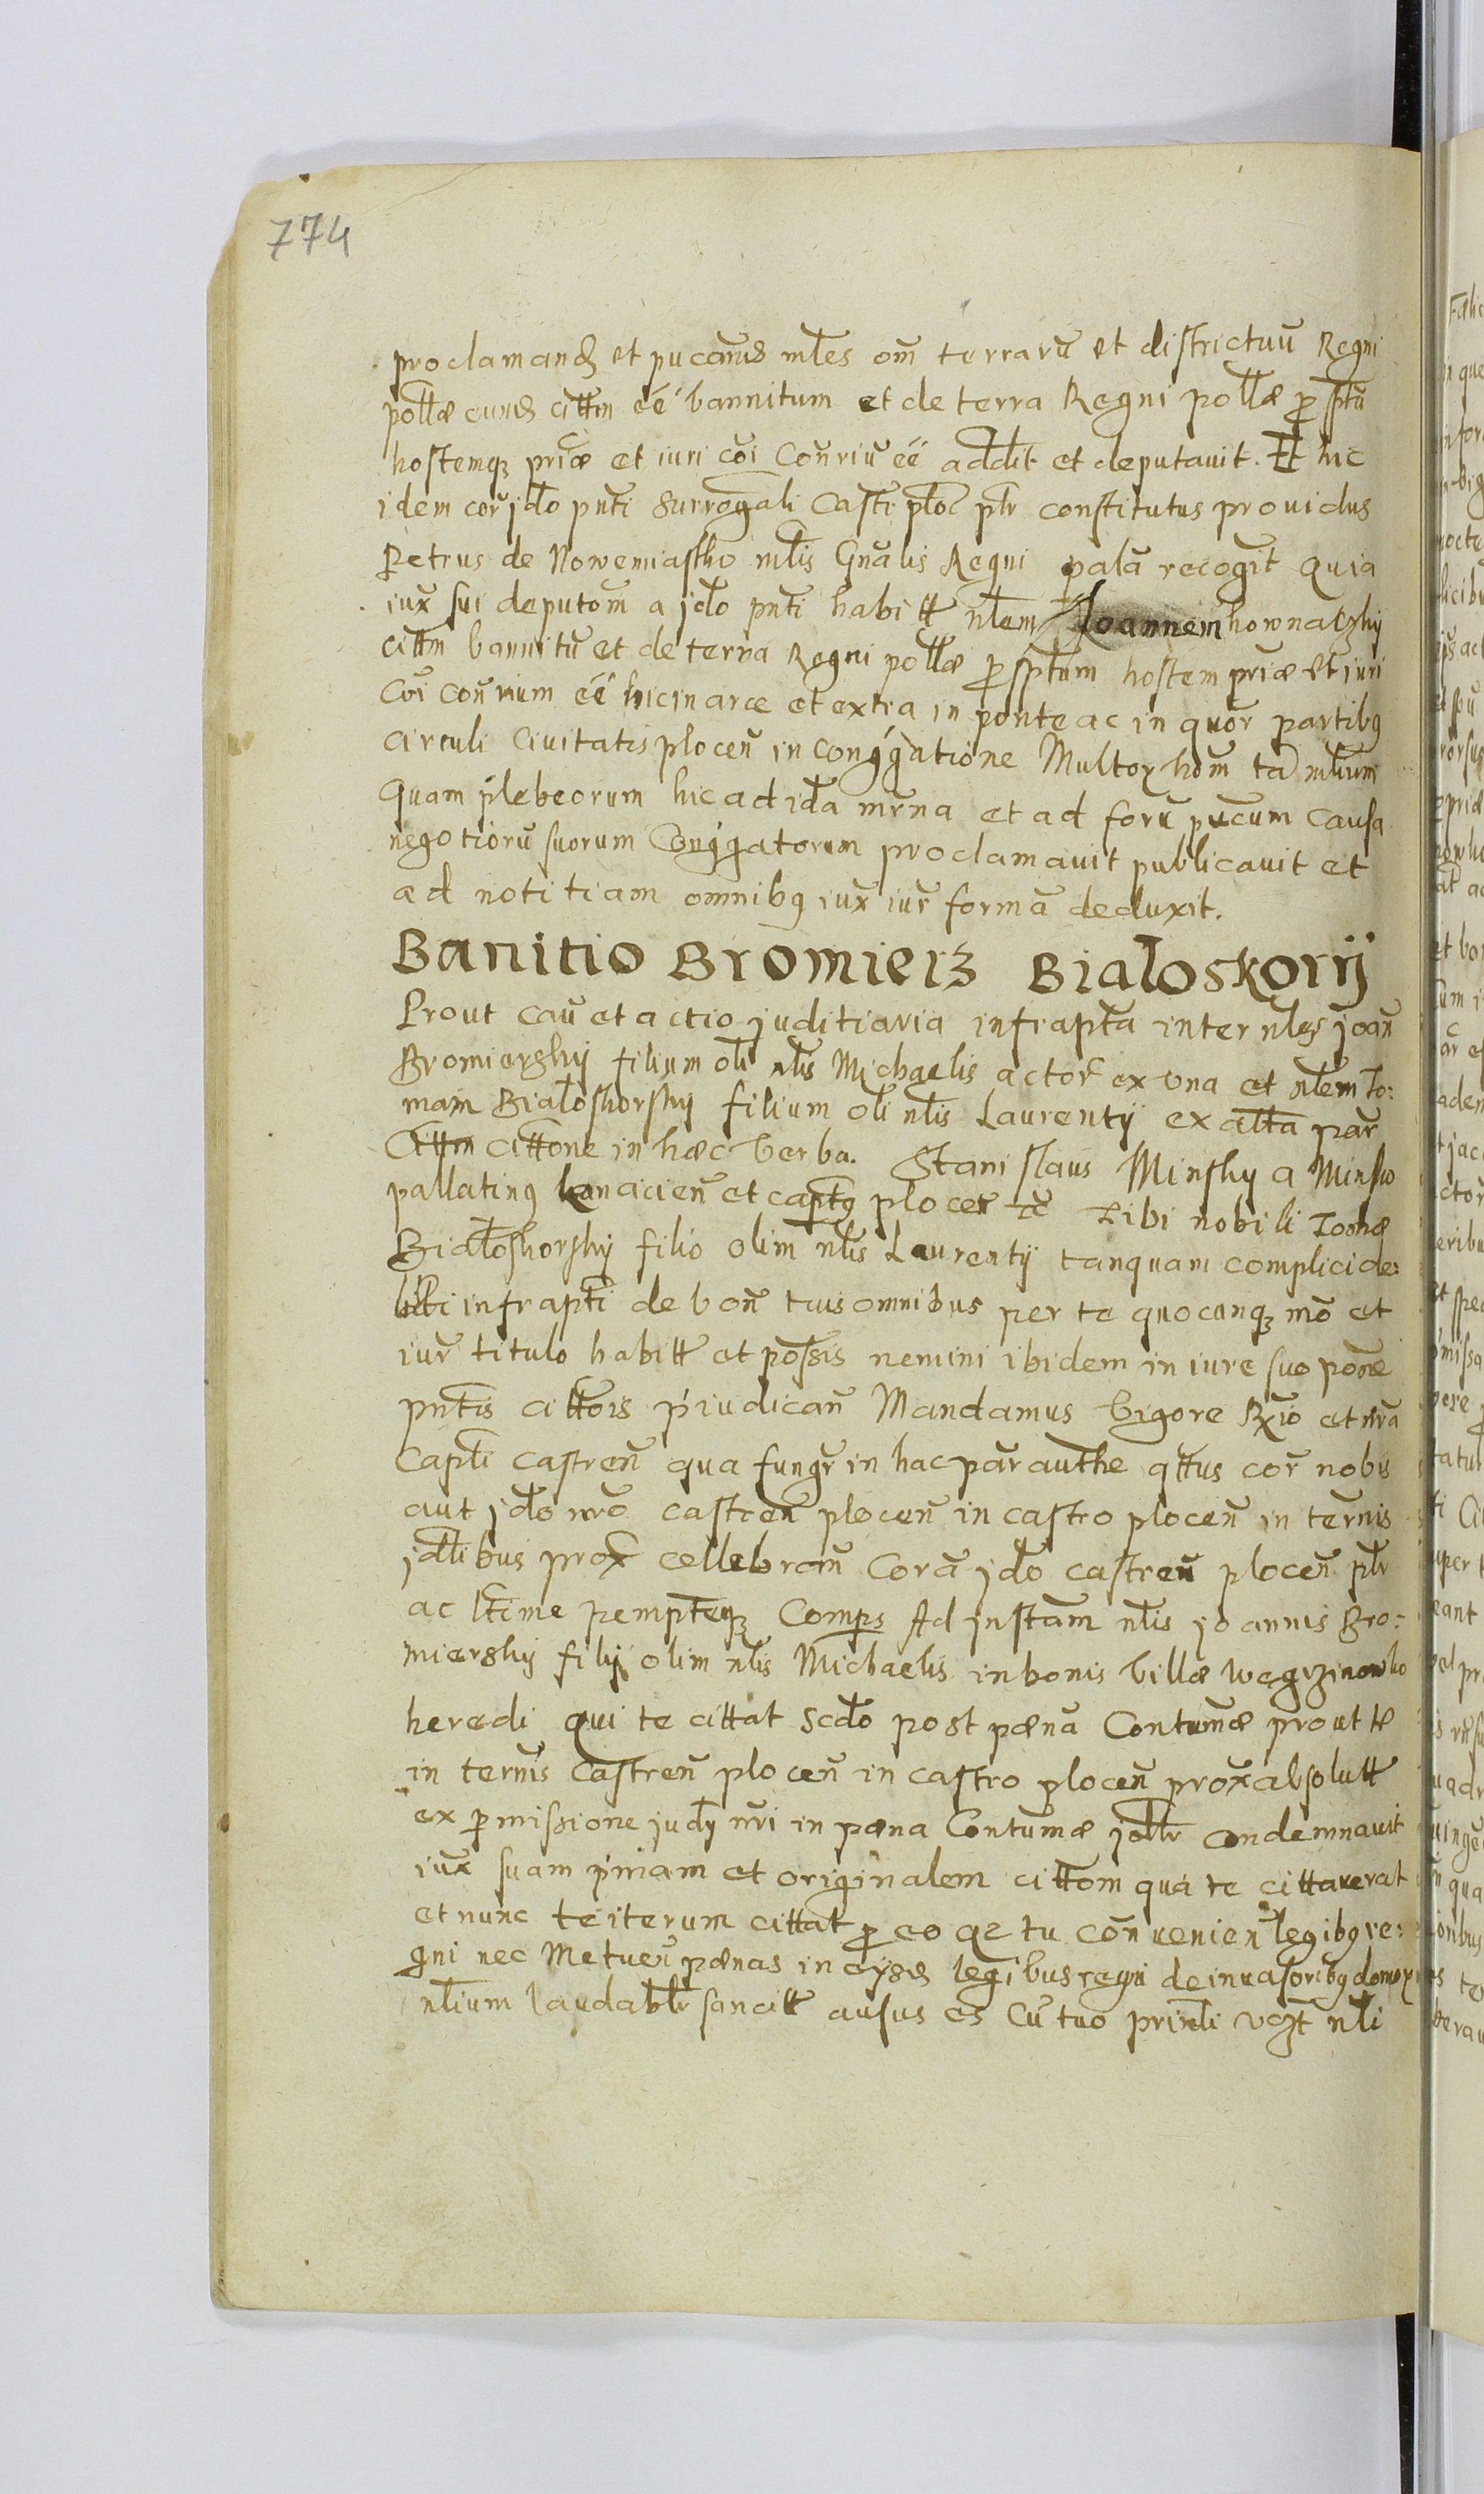 774
proclamand et pucand mles om terraru et districtuu Regni
pollæ eund cittm eé bannitum et de terra Regni pollæ p sptu
hostemq priæ et iuri coi Conriu eé addit et deputauit. Et hic
idem cor jdo pnti Surrogali Castr ploc plr constitutus prouidus
Petrus de Nowemiastho mlis Gnalis Regni pala recogit quia
iux sui deputom a jdo pnti habitt nlem Joannem hownatzky
cittm bannitu et de terra Regni pollæ p sptum hostem priæ et iuri
Coi conrium eé hic in arce et extra in ponte ac in quor partibq
circuli Ciuitatis plocen in conggatione Multor hom ta nlium
quam plebeorum hic ad ida mrna et ad foru pucum causa
negotioru suorum Conggatorum proclamauit publicauit et
ad notitiam omnibq iux iur forma deduxit.
Banitio Bromierz Bialoskorÿ
Prout cau et actio juditiaria infrapta inter nles joan
Bromierskÿ filium oli nlis Michaelis actor ex vna et nlem To:
mam Bialoskorsky filium oli nlis Laurentÿ ex alta par
Cittm cittone in hæc verba. Stanislaus Minsky a Minsko
pallatinq Lanacien et captq plocen tc Tibi nobili Tomæ
Bialoskorsky filio olim nlis Laurentÿ tanquam complici de:
bibi infrapti de bon tuis omnibus per te quocunq mo et
iur titulo habitt et possis nemini ibidem in iure suo pone
pntis cittois piudican Mandamus vigore Rxio et nra
Capti castren qua fungr in hac par authe qttus cor nobis
aut jdo nro castren plocen in castro plocen in ternis
jdlibus prox cellebran Cora jdo castren plocen plr
ac ltime pempteq Comprs Ad instam nlis joannis Bro:
mierskÿ filÿ olim nlis Michaelis in bonis villæ Wegrzinowko
heredi qui te cittat Scdo post pæna Contumæ prout te
in ternis castren plocen in castro plocen prox absolutt
ex pmissione judÿ nri in pæna Contumæ jdlr condemnauit
iux suam pmam et originalem cittom qua te cittauerat
et nunc te iterum cittat p eo qz tu conuenien legibq re:
gni nec Metuen pænas in eÿsd legibus regni de inuasoribq domor
nlium laudablr sancitt ausus es Cu tuo prinli vgt nli